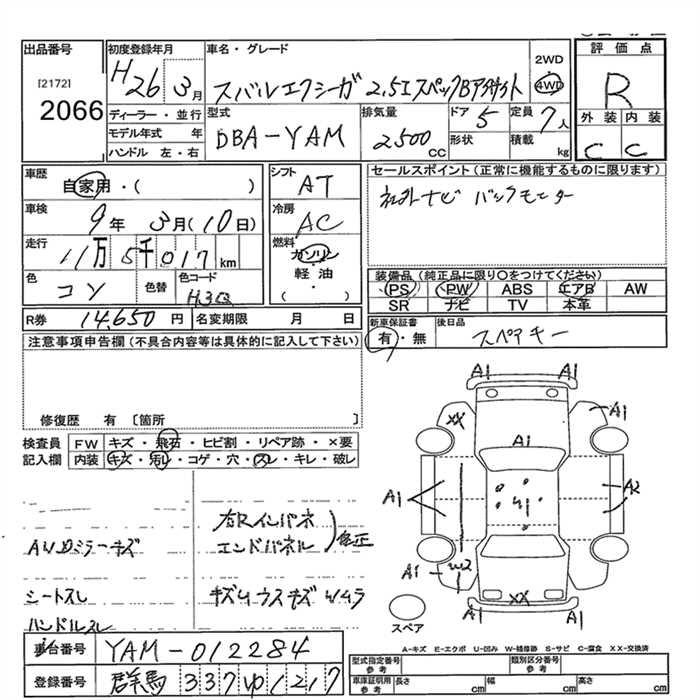 出品番号 初度登録年月 車名・グレード 評価点
[2172]
2066
H26 3月 スバルエクシーガ 2.5iスペックBアイサイト 2WD 4WD R
ディーラー・並行 型式 排気量 ドア 定員 外装 内装
モデル年式 年 DBA-YAM 2500cc 5 7人 C C
ハンドル 左・右 形状 積載 kg
車歴 自家用・( ) シフト AT セールスポイント(正常に機能するものに限ります)
車検 9年 3月(10日) 冷房 AC 社外ナビ バックモニター
走行 11万5千017km 燃料 ガソリン
色 コン 色替 色コード H3Q 軽油・( )
装備品(純正品に限り○をつけてください)
PS PW ABS エアB AW
SR ナビ TV 本革
R券 14,650円 名変期限 月 日 新車保証書 有・無 後日品 スペアキー
注意事項申告欄(不具合内容等は具体的に記入して下さい)
修復歴 有 〔箇所 〕
検査員 FW キズ・飛石・ヒビ割・リペア跡・×要
記入欄 内装 キズ・汚レ・コゲ・穴・スレ・キレ・破レ
右Rインパネ
AWミラーキズ エンドパネル 修正
シートスレ キズ ウスキズ Wムラ
ハンドルスレ
A1 A1
XX A1
A1
A1 A2
A1 W2
XX
スペア
A-キズ E-エクボ U-凹み W-補修跡 S-サビ C-腐食 XX-交換済
車台番号 YAM-012284
型式指定番号 参考 類別区分番号 参考
登録番号 群馬 337 ゆ 1217
車庫証明用 参考 長さ cm 幅 cm 高さ cm